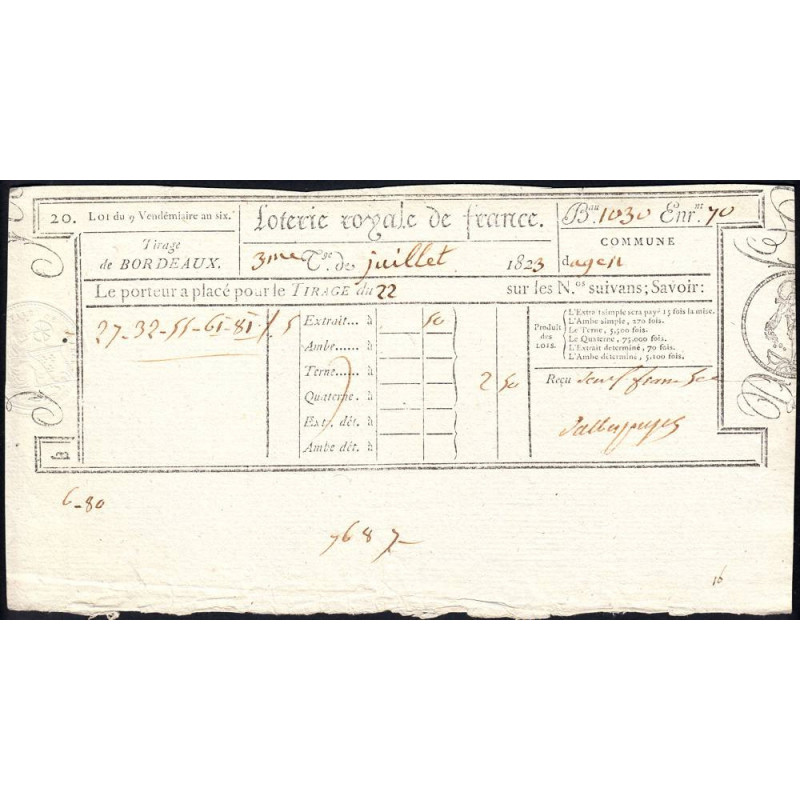 20. Loi du 9 Vendémiaire an six.
Loterie royale de france.
Bau. 1030 Enr.nt 70
Tirage
de BORDEAUX.
3me T.ge de juillet 1823
COMMUNE
d'agen
Le porteur a placé pour le TIRAGE du 22 sur les N.os suivans; Savoir:
27-32-55-61-81 /. 5
Extrait... à 50
Ambe..... à
Terne..... à
Quaterne. à
Ext. dét. à
Ambe dét. à
2 50
Produit des LOIS.
L'Extrait simple sera payé 15 fois la mise.
L'Ambe simple, 270 fois.
Le Terne, 5,500 fois.
Le Quaterne, 75,000 fois.
L'Extrait déterminé, 70 fois.
L'Ambe déterminé, 5,100 fois.
Reçu
6-80
7687
16